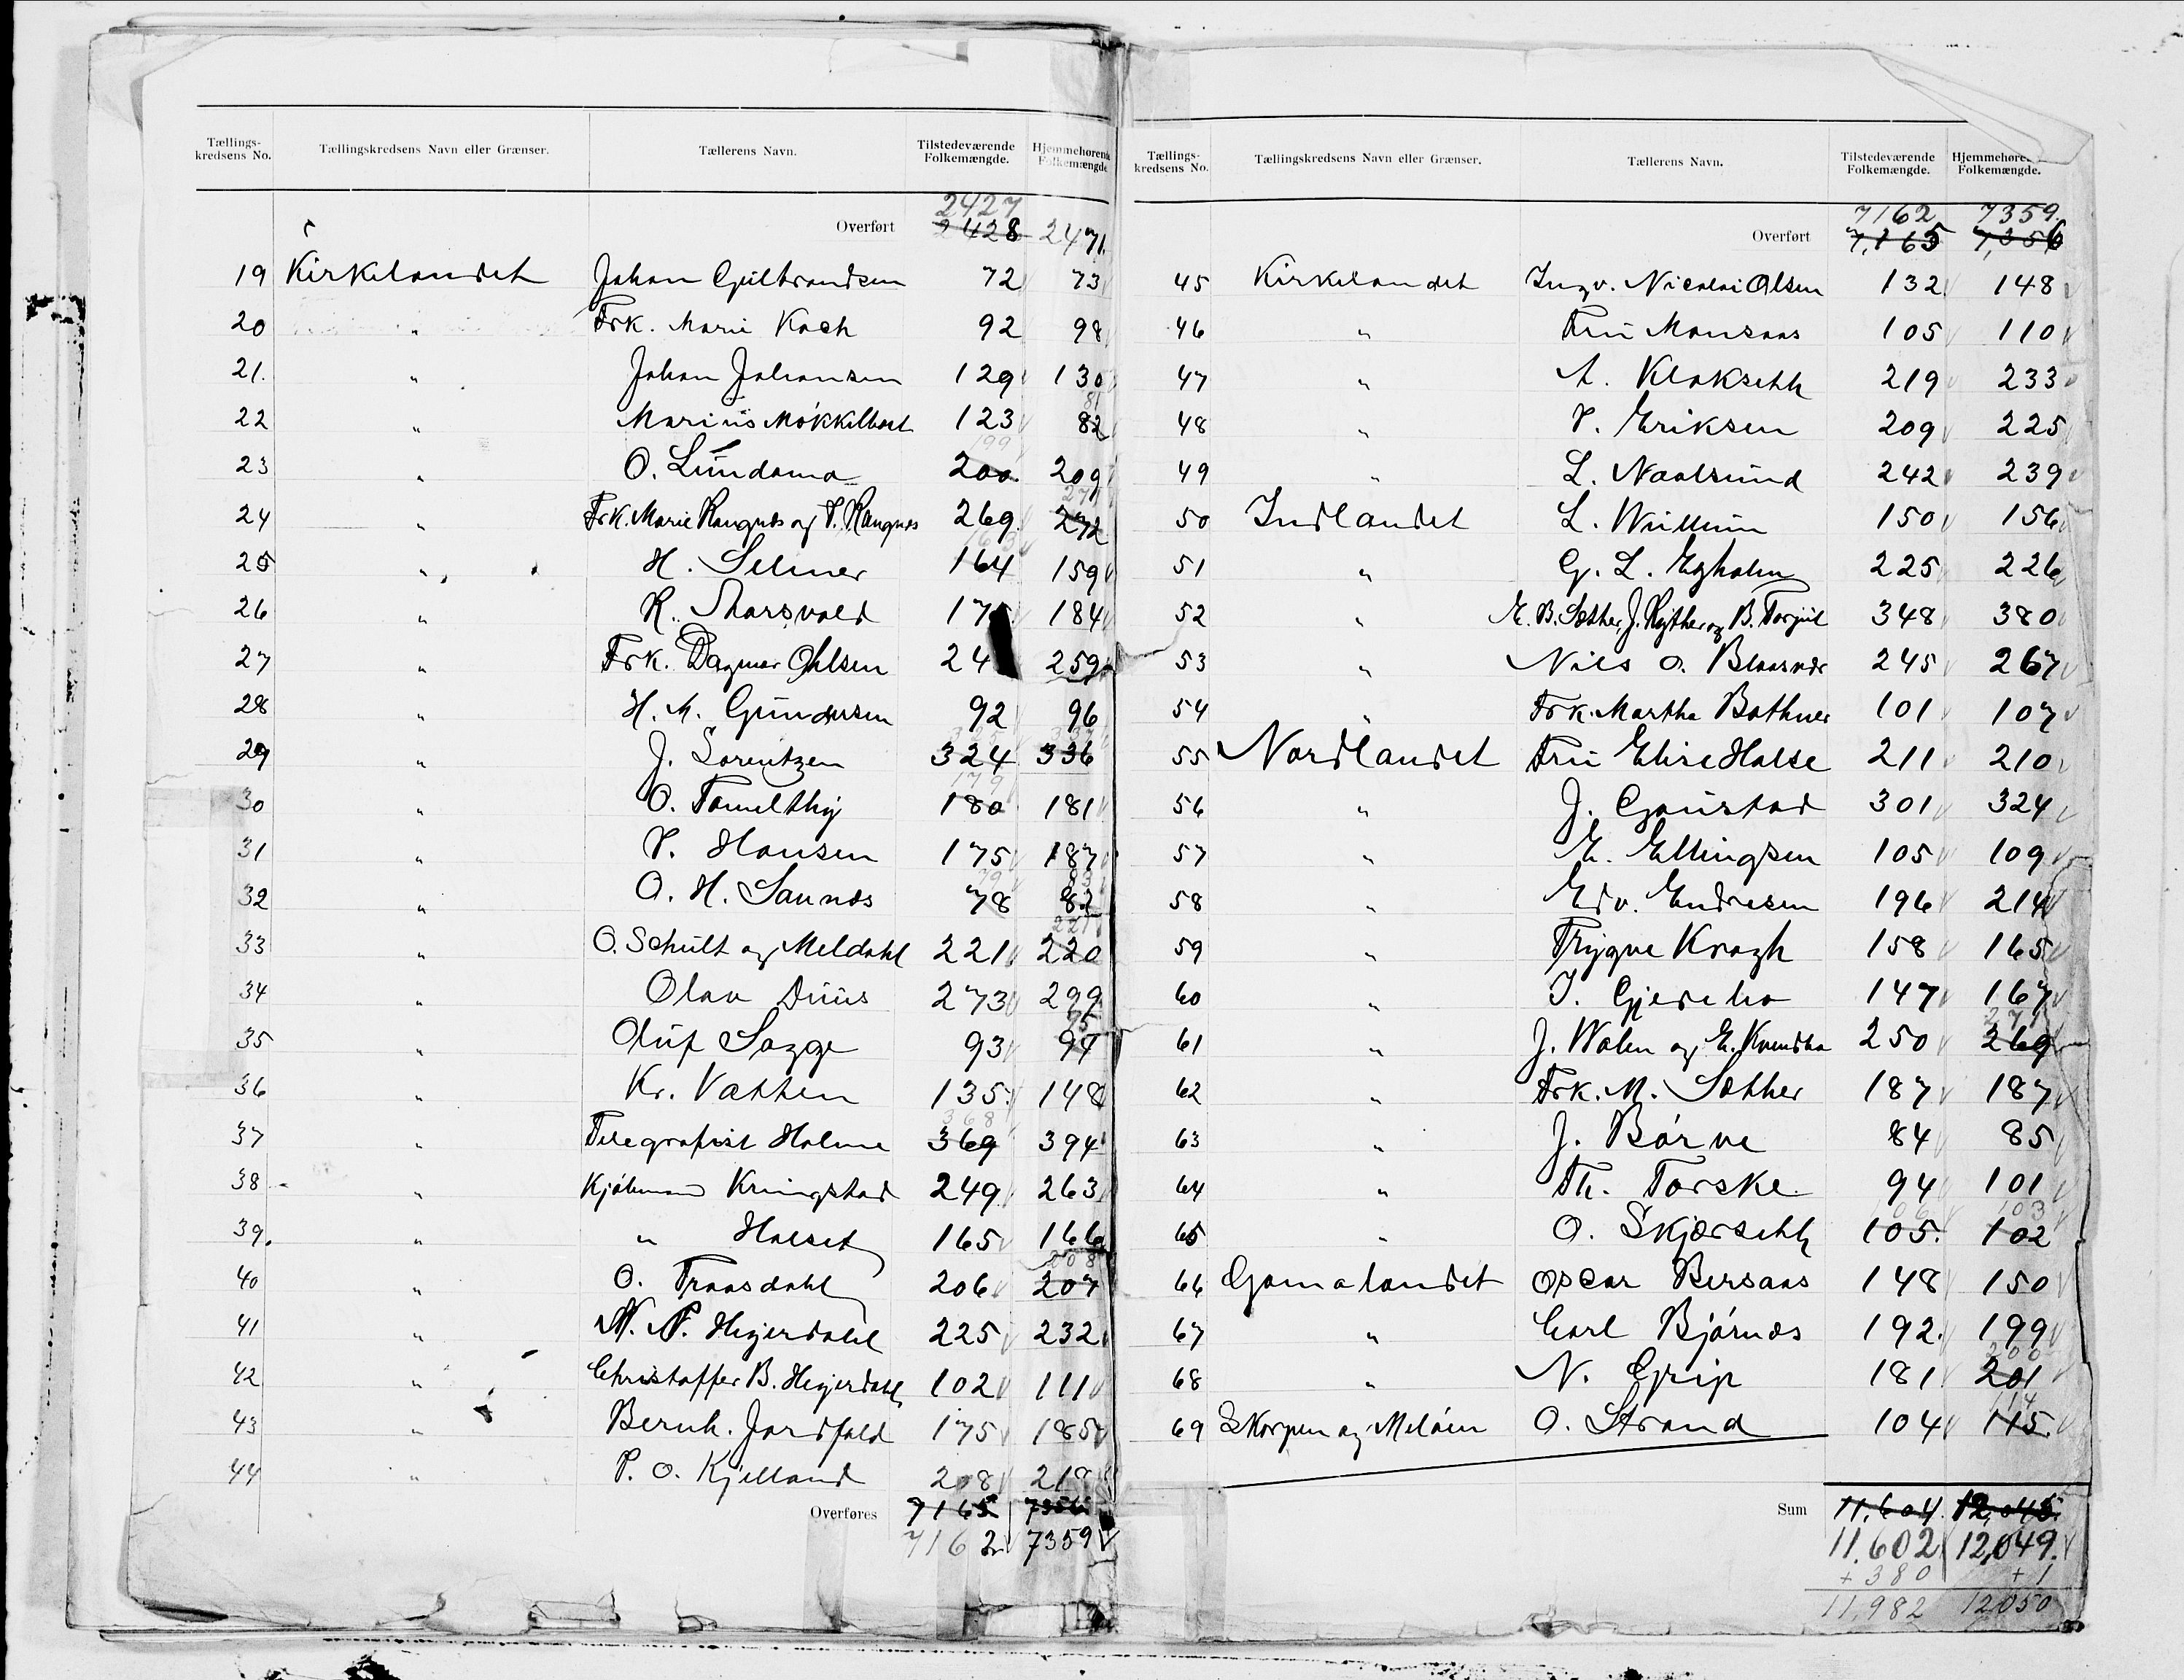 Tællings-kredsens No. Tællingskredsens Navn eller Grænser. Tællerens Navn. Tilstedeværende Folkemængde. Hjemmehørende Folkemængde
2427
Overført 2428 2471.
19 Kirkelandet Johan Gulbrandsen 72 73
20 " Frk. Marie Koch 92 98
21. " Johan Johansen 129 130
81
22 " Marius Mókkelbost 123 82
199
23 " O. Lundamo 200 209
271
24 " Frk. Marie Rangnæs og P. Rangnæs 269 272
163
25 " H. Selmer 164 159
26 " K. Aarsvold 17 184
27 " Frk. Dagmar Ohlsen 24 259
28 " H. M. Gundersen 92 96
325 337
29 " J. Lorentzen 324 336
179
30 " O. Tomelthy 180 181
31 " P. Hansen 175 187
79 83
32 " O. H. Saunæs 78 82
221
33 " O. Schult og Meldahl 221 220
34 " Olav Duus 273 299
95
35 " Oluf Sagge 93 94
36 " Kr. Vatten 135 148
368
37 " Telegrafist Holme 369 394
38 " Kjóbmand Kringstad 249 263
39. " " Halset 165 166
208
40 " O. Traasdahl 206 207
41 " N. P. Hejerdahl 225 232
42 " Christoffer B. Hejerdahl 102 111
43 " Bernh. Jordfald 175 185
44 " P. O. Kjelland 208 218
Overføres 7165 7356
7162 7359
Tællings-kredsens No. Tællingskredsens Navn eller Grænser. Tællerens Navn. Tilstedeværende Folkemængde. Hjemmehøre Folkemængde.
7162 7359.
Overført 7,165 7,356
45 Kirkelandet Ingv. Nicolai Olsen 132 148
46 " Fru Monsaas 105 110
47 " A. Klokseth 219 233
48 " P. Eriksen 209 225
49 " L. Naalsund 242 239
50 Indlandet L. Wullum 150 156
51 " G. L. Egholm 225 226
52 " E. B. Sæther, J. Rytter og B. Torjul 348 380
53 " Nils O. Blaasvær 245 267
54 " Frk. Martha Bothner 101 107
55 Nordlandet Fru Elise Halse 211 210
56 " J. Gaustad 301 324
57 " E. Ellingsen 105 109
58 " Edv. Endresen 196 214
59 " Trygve Kragh 158 165
60 " I. Gjerebo 147 167
271
61 " J. Walen og E. Kvendbo 250 269
62 " Frk. M. Sæther 187 187
63 " J. Bórve 84 85
64 " Th. Torske 94 101
106 103
65 " O. Skjærseth 105. 102
66 Gomalandet Oscar Bersaas 148 150
67 " Carl Bjórnæs 192. 199
200
68 " N. Grip 181 201
114
69 Skorpen og Melóen O. Strand 104 115.
Sum 11,604. 12,045.
11.602 12,049.
+ 380 + 1
11,982 12,050